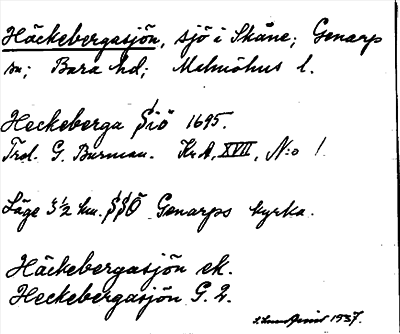 Häckebergasjön, sjö i Skåne; Genarp
sn; Bara hd; Malmöhus l.
Heckeberga Siö 1695.
Trol. G. Burman. KrA, XVII, N:o 1
Läge 3 1/2 km. SSÖ Genarps kyrka.
Häckebergasjön ek.
Heckebergasjön G. 2.
1937.